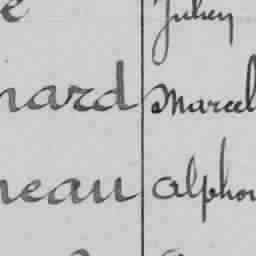 e Juhen
nard Marcel
neau alphon